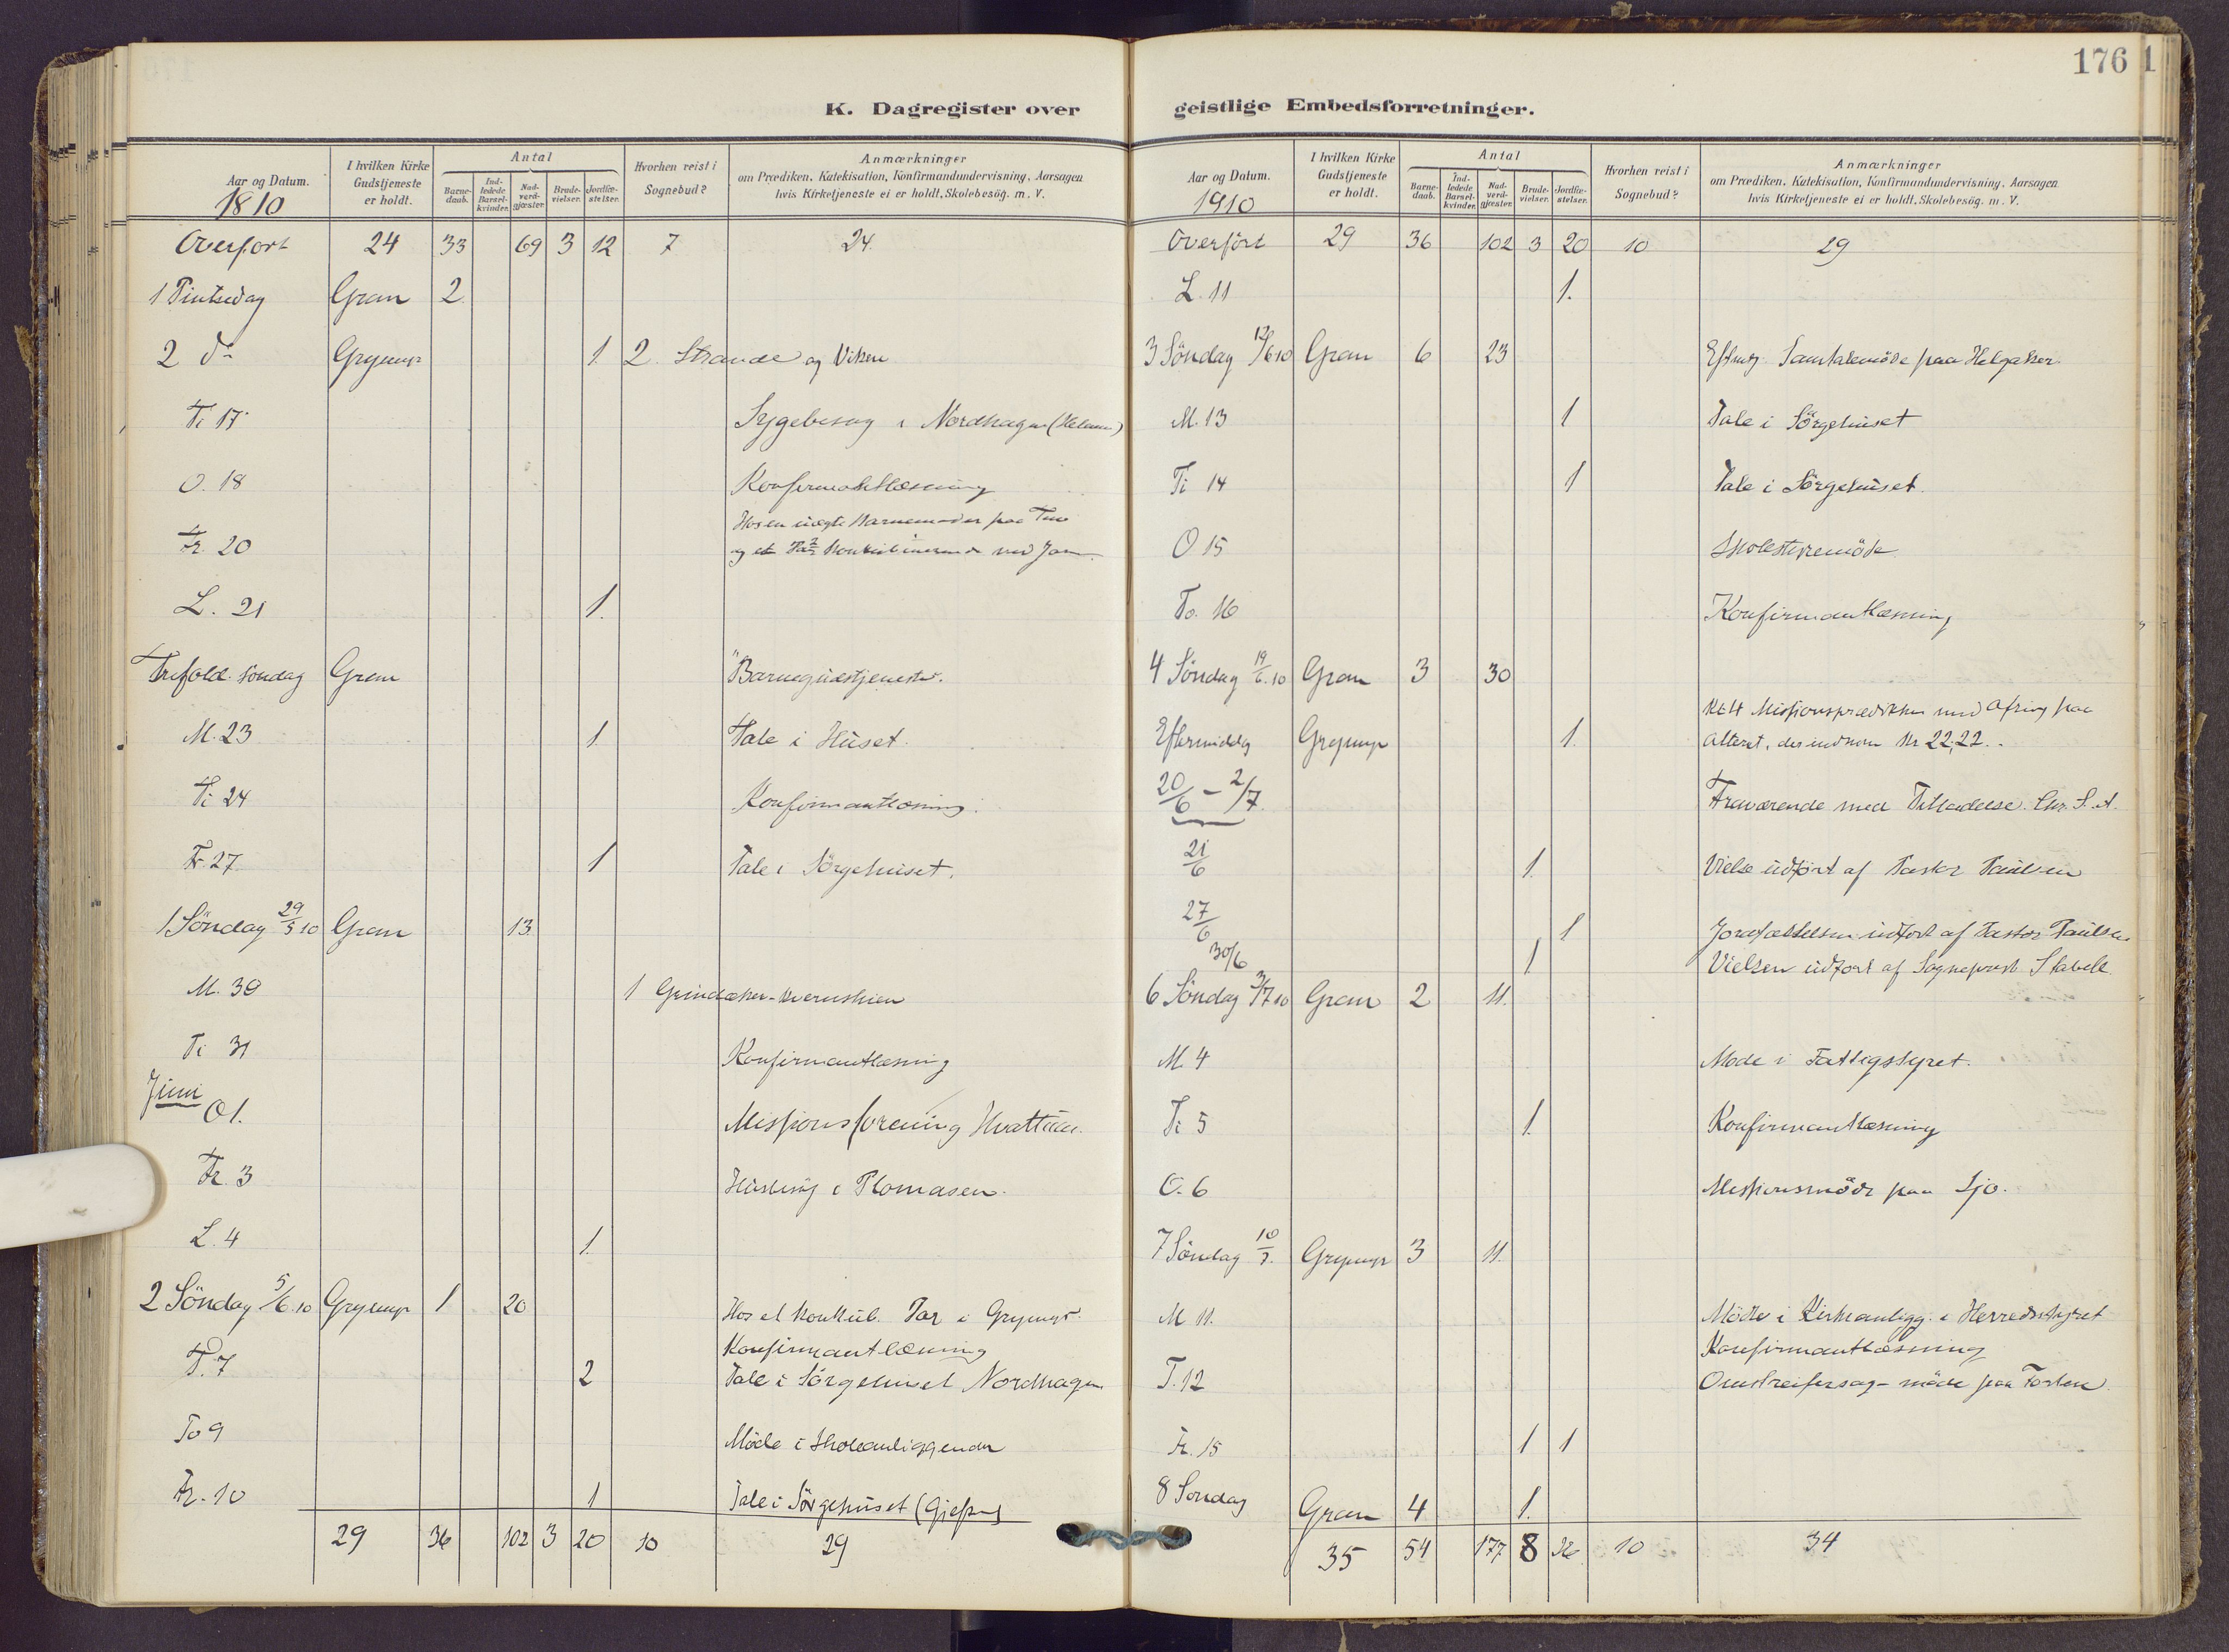 176 1
K. Dagregister over
Aar og Datum.
1810
I hvilken Kirke Gudstjeneste er holdt.
Antal
Barne-daab.
Ind-ledede Barsel-kvinder.
Nad-verd-gjæster.
Brude-vielser.
Jordfæ-stelser.
Hvorhen reist i Sognebud?
Anmærkninger
om Prædiken, Katekisation, Konfirmandundervisning, Aarsagen
hvis Kirketjeneste ei er holdt, Skolebesög. m. V.
Overført 24 33 69 3 12 7 24.
1 Pintsedag Gran 2
2 do Grymyr 1. 2 Strande og Viken
Ti 17. Sygebesøg i Nordhagen
O. 18 Konfirmantlæsning
Fr. 20
L. 21 1.
Trefold. søndag Gran Barnegudstjeneste.
M. 23 1. Tale i Huset.
Ti 24 Konfirmantlæsning.
Fr. 27 1 Tale i Sörgehuset.
1 Söndag 29/5 10 Gran 13.
M. 30 1
Ti 31 Konfirmantlæsning
Juni
O 1. Missionsforening Hvattum.
Fr. 3 Husbesøg i Plomasen.
L. 4 1.
2 Söndag 5/6 10 Grymyr 1 20 Hos et konkub. Par i Grymyr.
Konfirmantlæsning
T. 7 2 Tale i Sörgehuset Nordhagen
To 9 Möde i Skoleanliggender
Fr. 10 1 Tale i Sörgehuset
29 36 102 3 20 10 29
geistlige Embedsforretninger.
Aar og Datum.
1910
I hvilken Kirke Gudstjeneste er holdt.
Antal
Barne-daab.
Ind-ledede Barsel-kvinder.
Nad-verd-gjæster.
Brude-vielser.
Jordfæ-stelser.
Hvorhen reist i Sognebud?
Anmærkninger
om Prædiken, Katekisation, Konfirmandundervisning, Aarsagen
hvis Kirketjeneste ei er holdt, Skolebesög. m. V.
Overført 29 36 102 3 20 10 29
L. 11 1.
3 Söndag 12/6 10 Gran 6 23 Eftmg. Samtalemöde paa Helgaker.
M. 13 1 Tale i Sörgehuset
Ti 14 1 Tale i Sörgehuset.
O 15 Skolestyremöde
To. 16 Konfirmantlæsning
4 Söndag 19/6.10 Gran 3 30
Kl 4 Missionsprædiken med Ofring paa
Eftermiddg Grymyr 1. Alteret, der indkom Kr 22,22.
20/6 – 2/7. Fraværende med Tilladelse.
21/6 1. Vielse udført af Pastor Paulsen
27/6 1 Jordfæstelsen udført af Pastor Paulsen
30/6 1 Vielsen udført af Sogneprest Stabell
6 Söndag 3/7 10 Gran 2 11.
M. 4 Møde i Fattigstyret.
Ti 5 1. Konfirmantlæsning
O. 6 Missionsmöde paa Sjo.
7 Söndag 10/7. Grymyr 3 11.
M 11. Möde i Kirkeanligg. i Herredsstyret
Konfirmantlæsning
T. 12 Omstreifersag- möde paa Forten
Fr. 15 1 1
8 Sondag Gran 4 1.
35 54 177 8 26 10 34